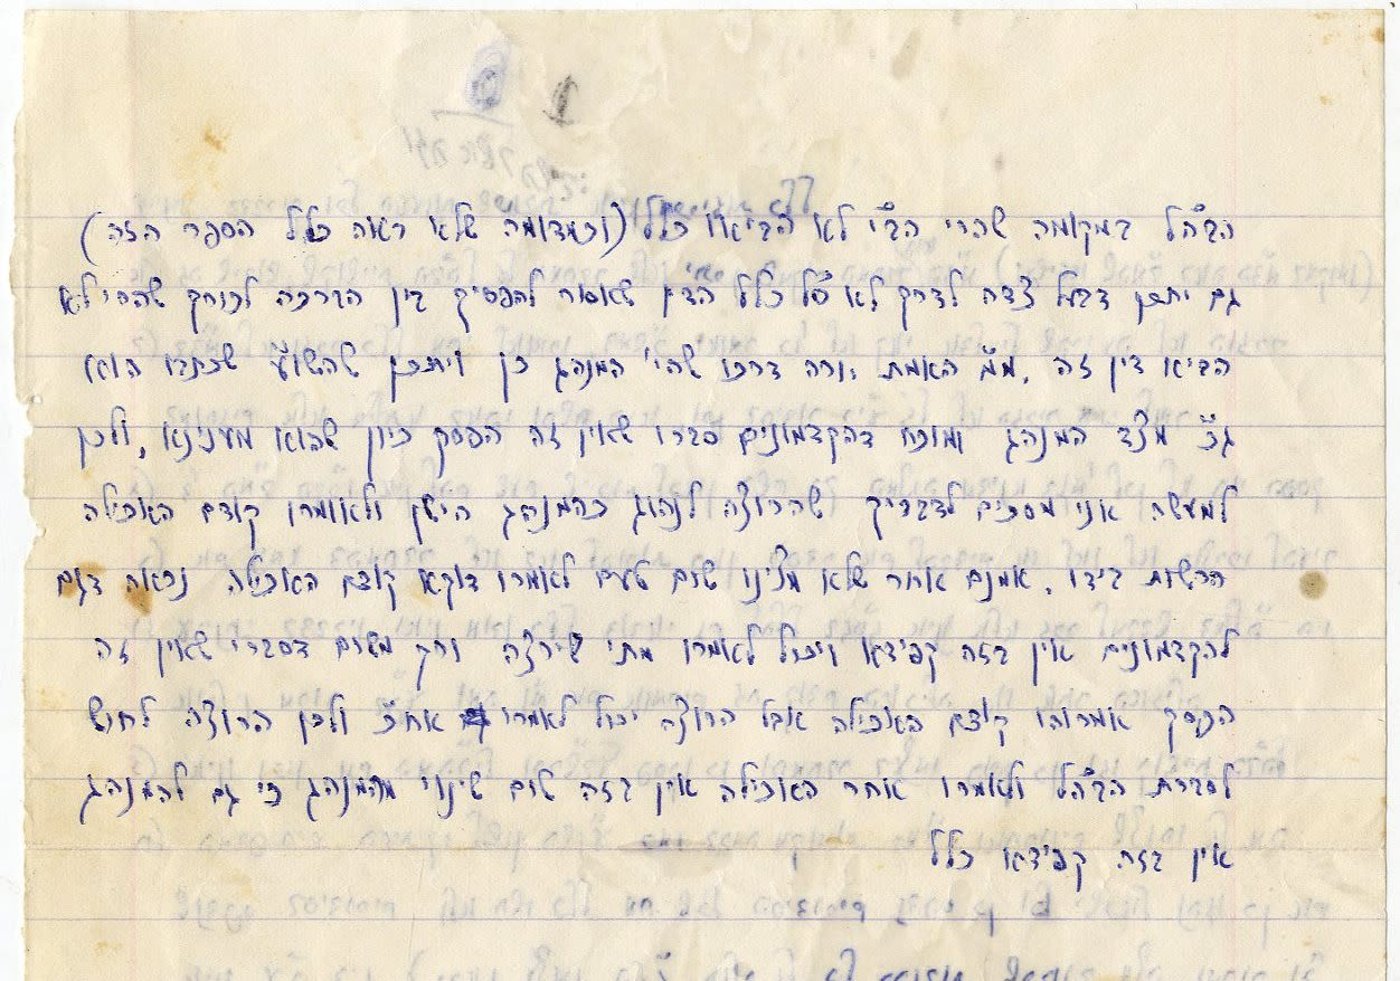 הבה"ל במקומה שהרי הב"י לא הביאו כלל (וכמדומה שלא ראה כלל הספר הזה)
גם יתכן דבעל צדה לדרך לא ס"ל כלל הדין שאסור להפסיק בין הברכה לכורך שהרי לא
הביא דין זה. מ"מ האמת יורה דרכו שהי' המנהג כן ויתכן שהשו"ע שכתבו הוא
ג"כ מצד המנהג ומוכח דהקדמונים סברו שאין זה הפסק כיון שהוא מעניינא, ולכן
למעשה אני מסכים לדבריך שהרוצה לנהוג כהמנהג הישן ולאומרו קודם האכילה
הרשות בידו. אמנם אחר שלא מצינו שום טעם לאמרו דוקא קודם האכילה נראה דגם
להקדמונים אין בזה קפידא ויכול לאמרו מתי שירצה ורק משום דסברי שאין זה
הפסק אמרוהו קודם האכילה אבל הרוצה יכול לאמרו אח"כ ולכן הרוצה לחוש
לסברת הבה"ל ולאמרו אחר האכילה אין בזה שום שינוי מהמנהג כי גם להמנהג
אין בזה קפידא כלל